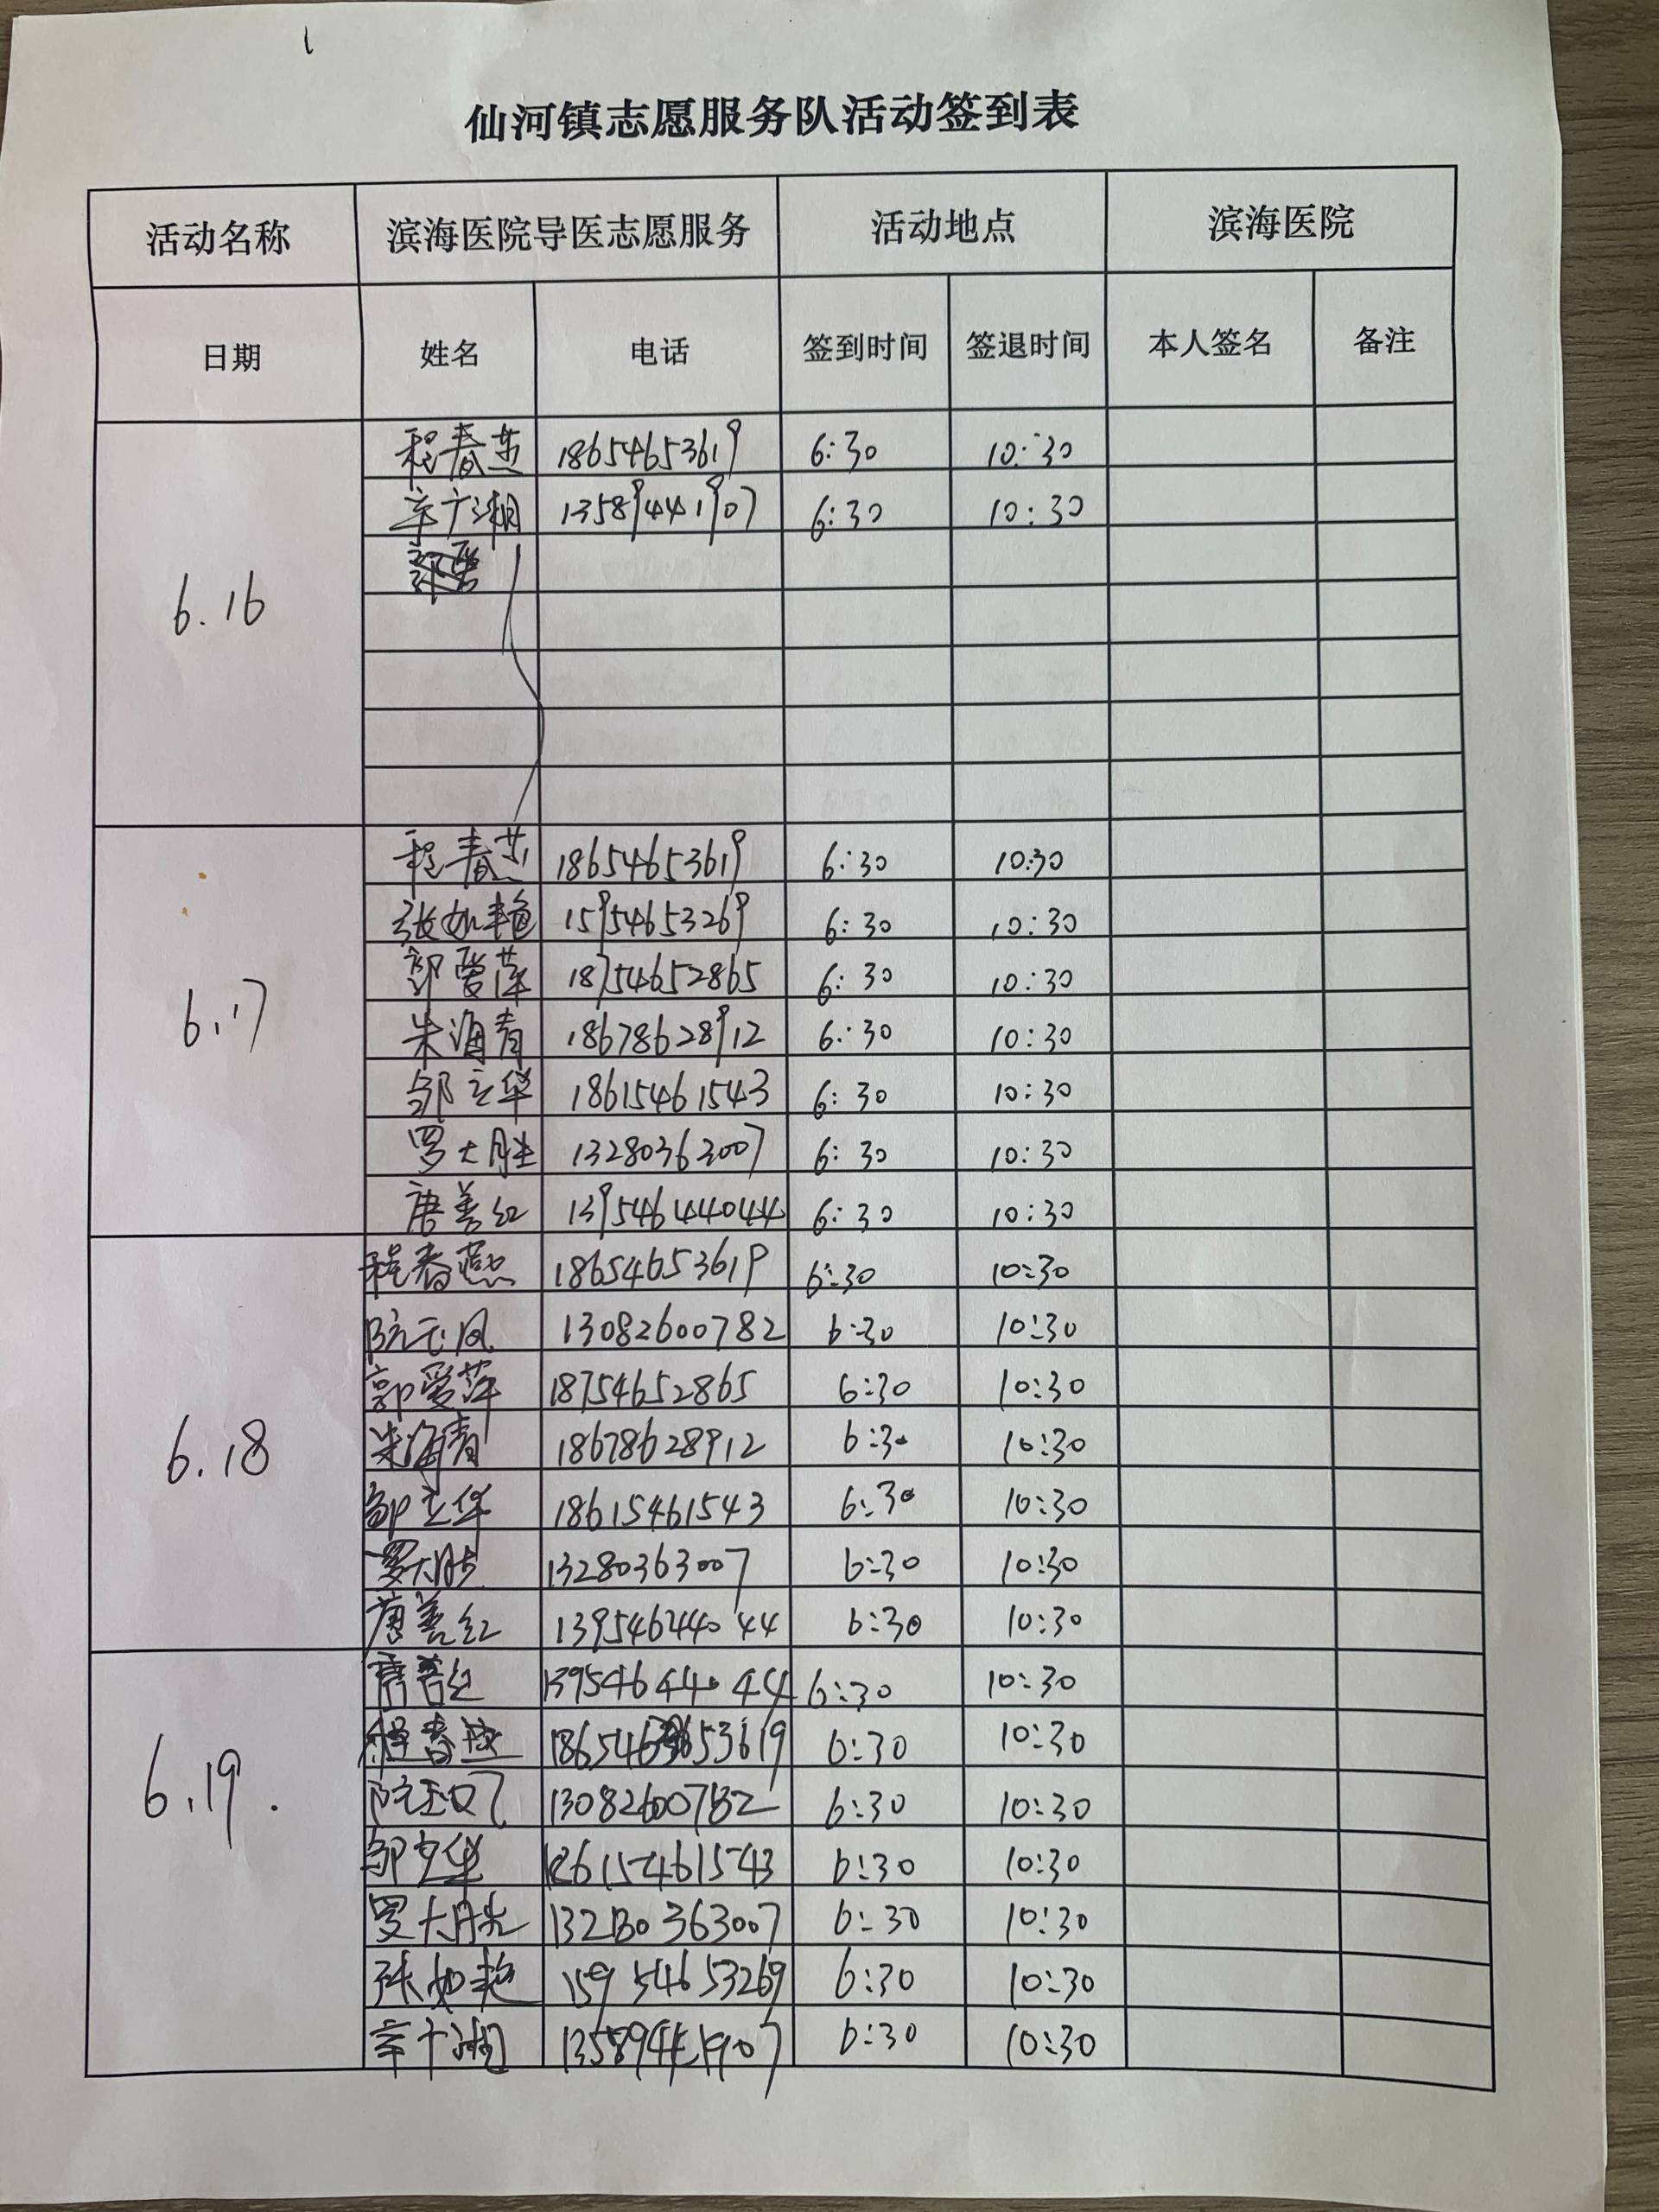 1
仙河镇志愿服务队活动签到表
活动名称 滨海医院导医志愿服务 活动地点 滨海医院
日期 姓名 电话 签到时间 签退时间 本人签名 备注
6.16
程春燕 18654653619 6:30 10:30
辛广湘 13589441907 6:30 10:30
6.17
程春燕 18654653619 6:30 10:30
张如艳 15954653269 6:30 10:30
郭爱萍 18754652865 6:30 10:30
朱海青 18678628912 6:30 10:30
邹立华 18615461543 6:30 10:30
罗大胜 13280363007 6:30 10:30
唐善红 13954644044 6:30 10:30
6.18
程春燕 18654653619 6:30 10:30
阮玉凤 13082600782 6:30 10:30
郭爱萍 18754652865 6:30 10:30
朱海青 18678628912 6:30 10:30
邹立华 18615461543 6:30 10:30
罗大胜 13280363007 6:30 10:30
唐善红 13954624044 6:30 10:30
6.19.
唐善红 13954644044 6:30 10:30
程春燕 6:30 10:30
阮玉凤 13082600782 6:30 10:30
邹立华 18615461543 6:30 10:30
罗大胜 13280363007 6:30 10:30
张如艳 15954653269 6:30 10:30
辛广湘 13589441907 6:30 10:30